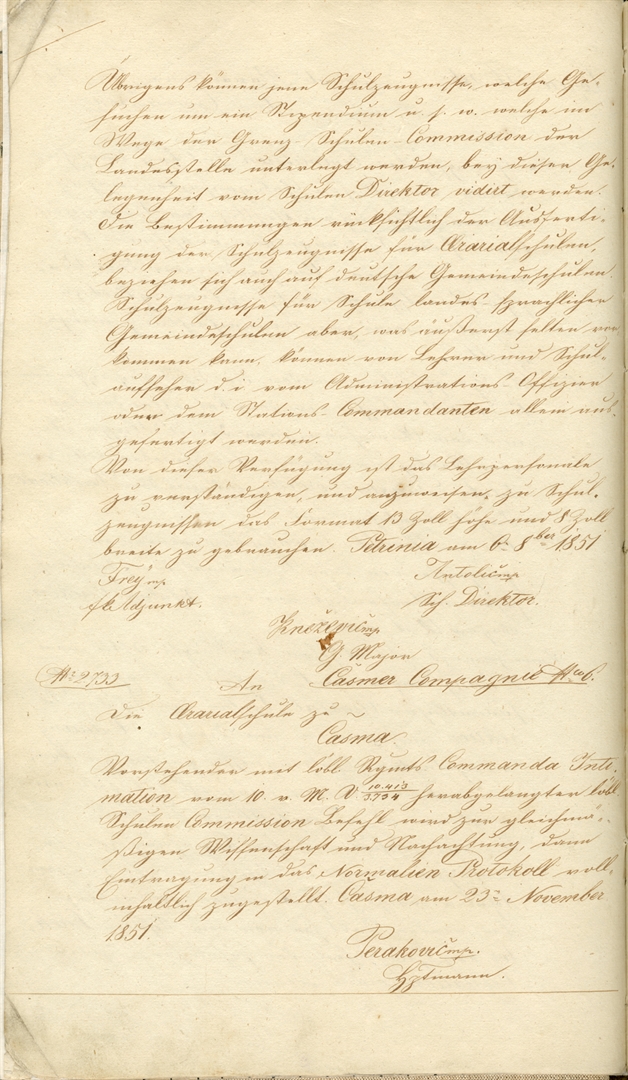 Übrigens können jene Schulzeugnisse, welche Ge-
suchen um ein Stipendium u. s. w. welche im
Wege der Grenz-Schulen-Commission der
Landesstelle unterlegt werden, bey dieser Ge-
legenheit vom Schulen Direktor vidirt werden.
Die Bestimmungen rücksichtlich der Ausferti-
gung der Schulzeugnisse für Ærarialschulen,
beziehen sich auch auf deutsche Gemeindeschulen.
Schulzeugnisse für Schüle landes-sprachlicher
Gemeindeschulen aber, was äußerst selten vor
kommen kann, können von Lehrer und Schul-
aufseher d. i. vom Administrations-Offizier
oder dem Stations-Commandanten allein aus-
gefertigt werden.
Von dieser Verfügung ist das Lehrpersonale
zu verständigen, und anzuweisen, zu Schul-
zeugnissen das Format 13 Zoll höhe und 8 Zoll
breite zu gebrauchen. Petrinia am 6. 8ber 1851
Frey mp. Antolić mp
Adjunkt. Sch. Direktor.
Knežević mp
G Major
No 2733 An Casmer Compagnie No 6.
Die Ærarialschule zu
Casma.
Vorstehender mit löbl. Rgmts Commanda Inti-
mation vom 10. v. M. 10.413/3734 herabgelangter löbl.
Schulen Commission Befehl wird zur gleichmä-
ßigen Wissenschaft und Nachachtung, dann
Eintragung in das Normalien Protokoll voll-
inhaltlich zugestellt. Casma am 23. November
1851.
Peraković mp.
Hptmann.